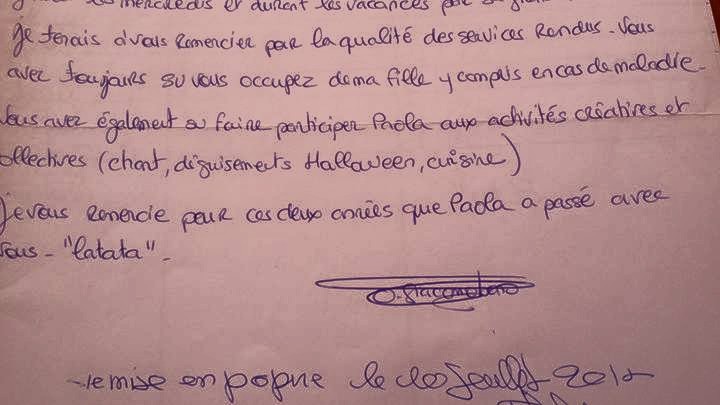 les mercredis et durant les vacances par
je tenais à vous remercier pour la qualité des services rendus. Vous
avez toujours su vous occupez de ma fille y compris en cas de maladie.
Vous avez également su faire participer Paola aux activités créatives et
collectives (chant, déguisements Halloween, cuisine)
Je vous remercie pour ces deux années que Paola a passé avec
vous - "latata" -
remise en propre le